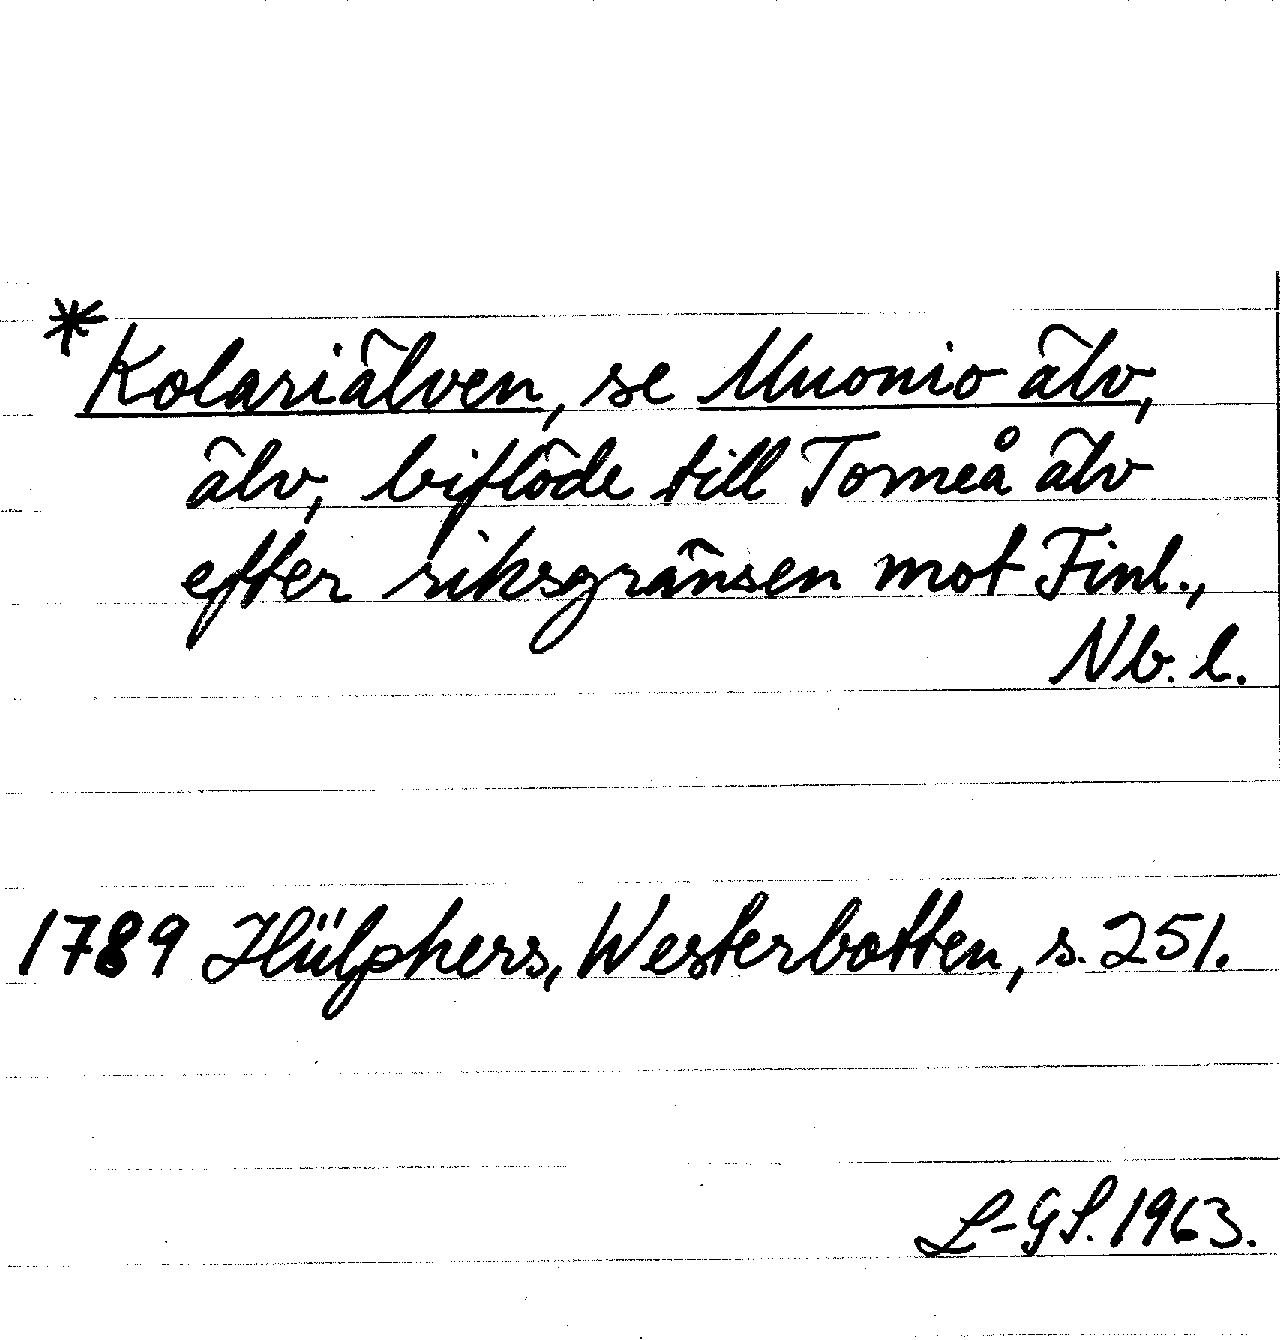 *Kolariälven, se Muonio älv,
älv, biflöde till Torneå älv
efter riksgränsen mot Finl.,
Nb. l.
1789 Hülphers, Westerbotten, s. 251.
L-GS. 1963.